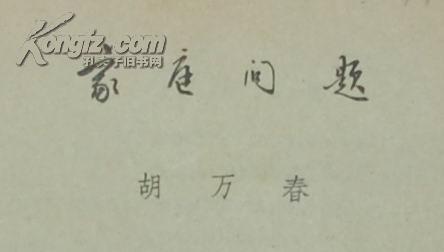 Kongfz.com
孔夫子旧书网
家庭问题
胡万春